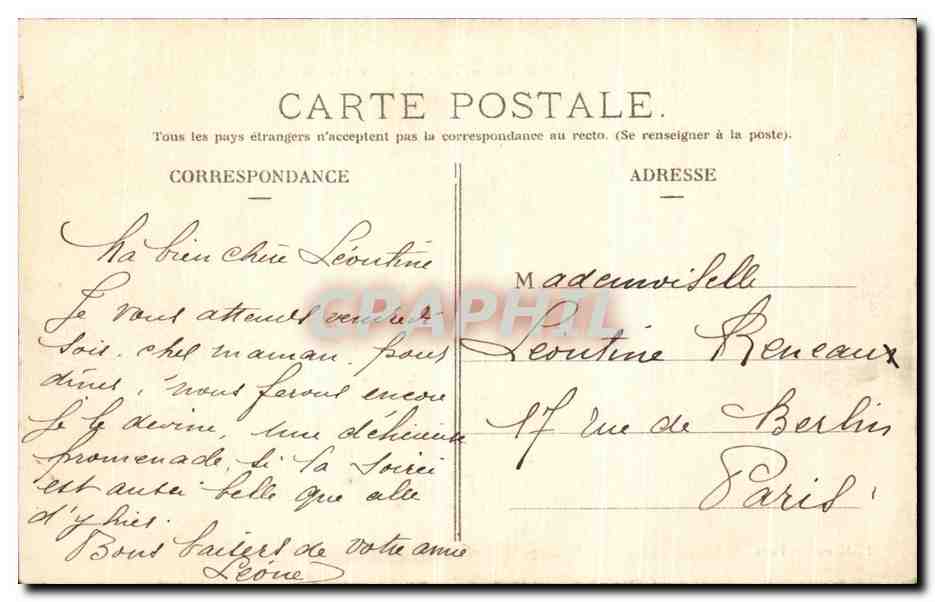 CARTE POSTALE.
Tous les pays étrangers n'acceptent pas la correspondance au recto. (Se renseigner à la poste).
CORRESPONDANCE
Ma bien chère Léontine
Je vous attends vendredi
soir chez maman pour
dîner, nous ferons encore
je le devine, une délicieuse
promenade, si la soirée
est aussi belle que celle
d'hier.
Bons baisers de votre amie
Léone
ADRESSE
Mademoiselle
Léontine Reneaux
17 rue de Berlin
Paris
CPAPHIL